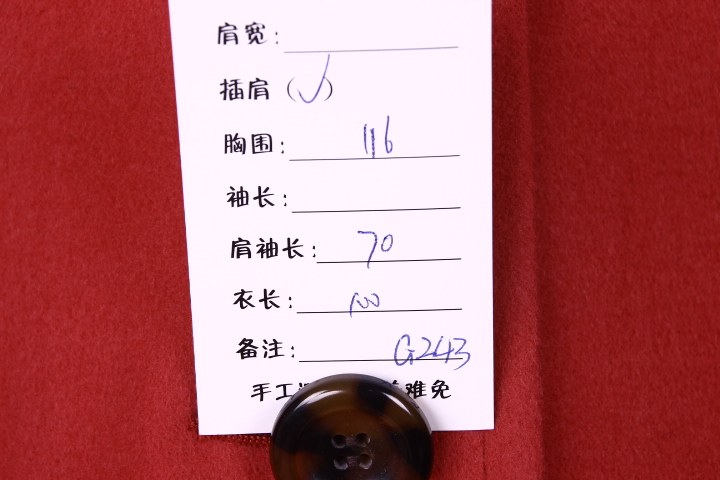 肩宽:
插肩（√）
胸围: 116
袖长:
肩袖长: 70
衣长: 100
备注: G243
手工 难免